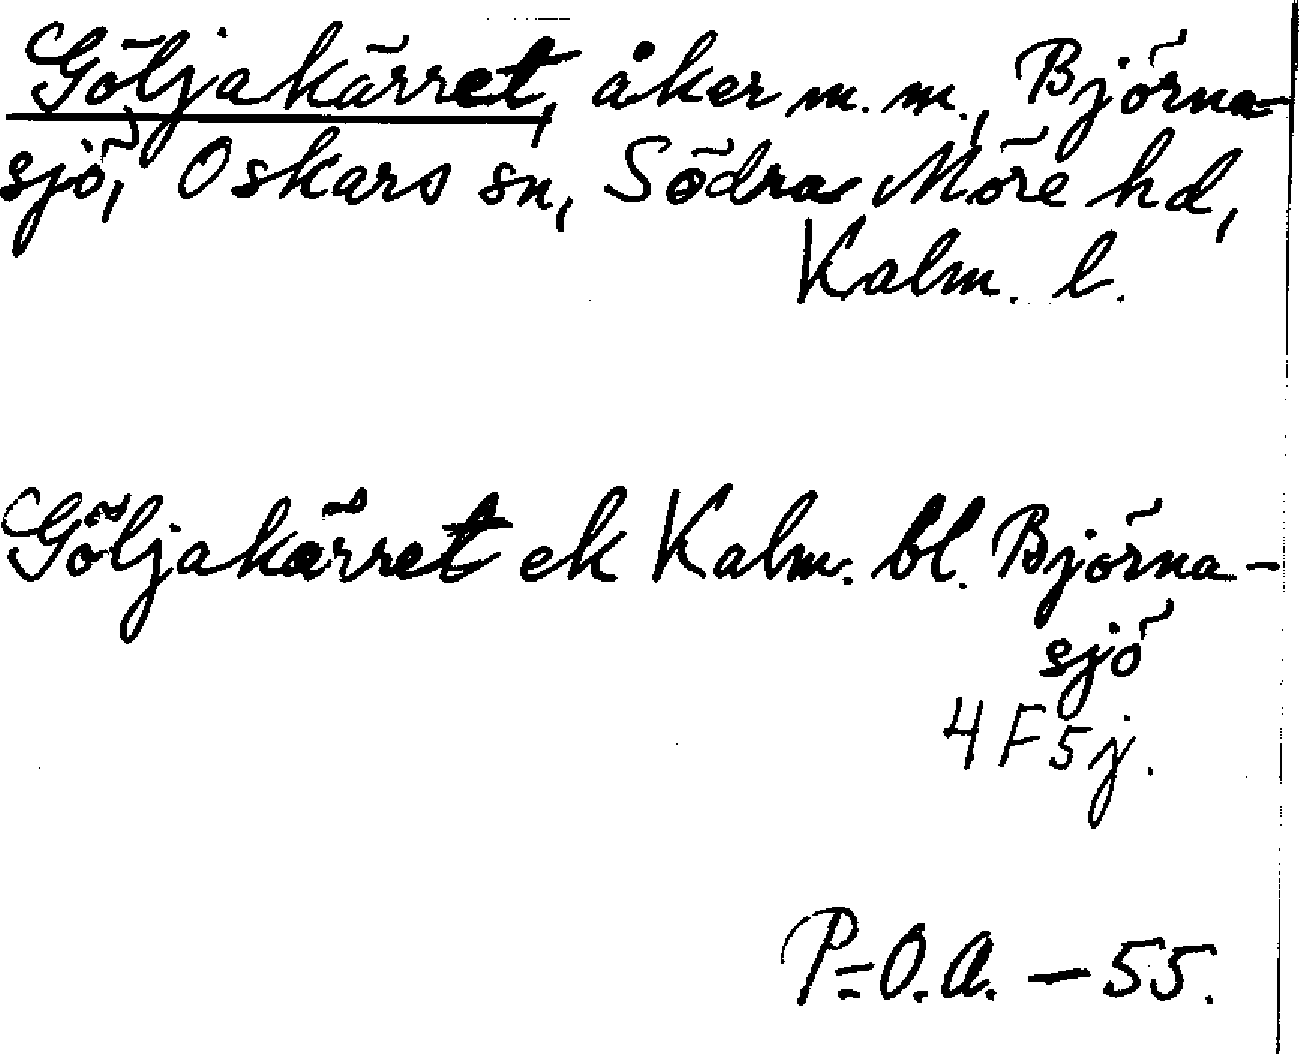 Göljakärret, åker m. m., Björna-
sjö, Oskars sn, Södra Möre hd,
Kalm. l.
Göljakärret ek Kalm. bl. Björna-
sjö
4 F 5 j.
P-O.A. - 55.